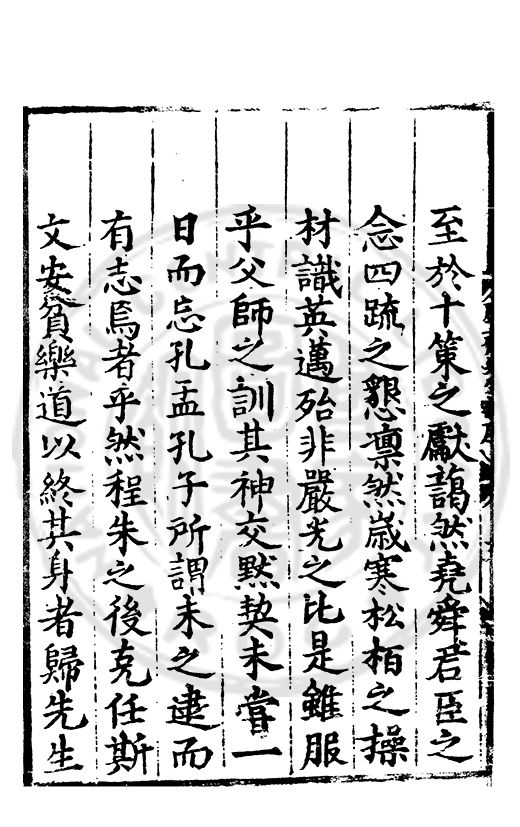 至於十策之獻藹然堯舜君臣之
念四疏之懇凛然歳寒松栢之操
材識英邁殆非嚴光之比是雖服
乎父師之訓其神交黙契未嘗一
日而忘孔孟孔子所謂未之逮而
有志焉者乎然程朱之後克任斯
文安貧樂道以終其身者歸先生